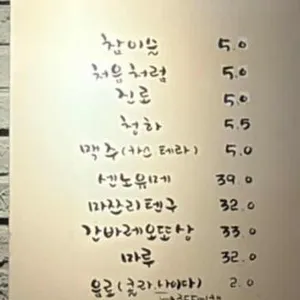 참이슬 5.0
처음처럼 5.0
진로 5.0
청하 5.5
맥주(카스 테라) 5.0
센노유메 39.0
마잔리텐구 32.0
간바레오또상 33.0
마루 32.0
음료(콜라,사이다) 2.0